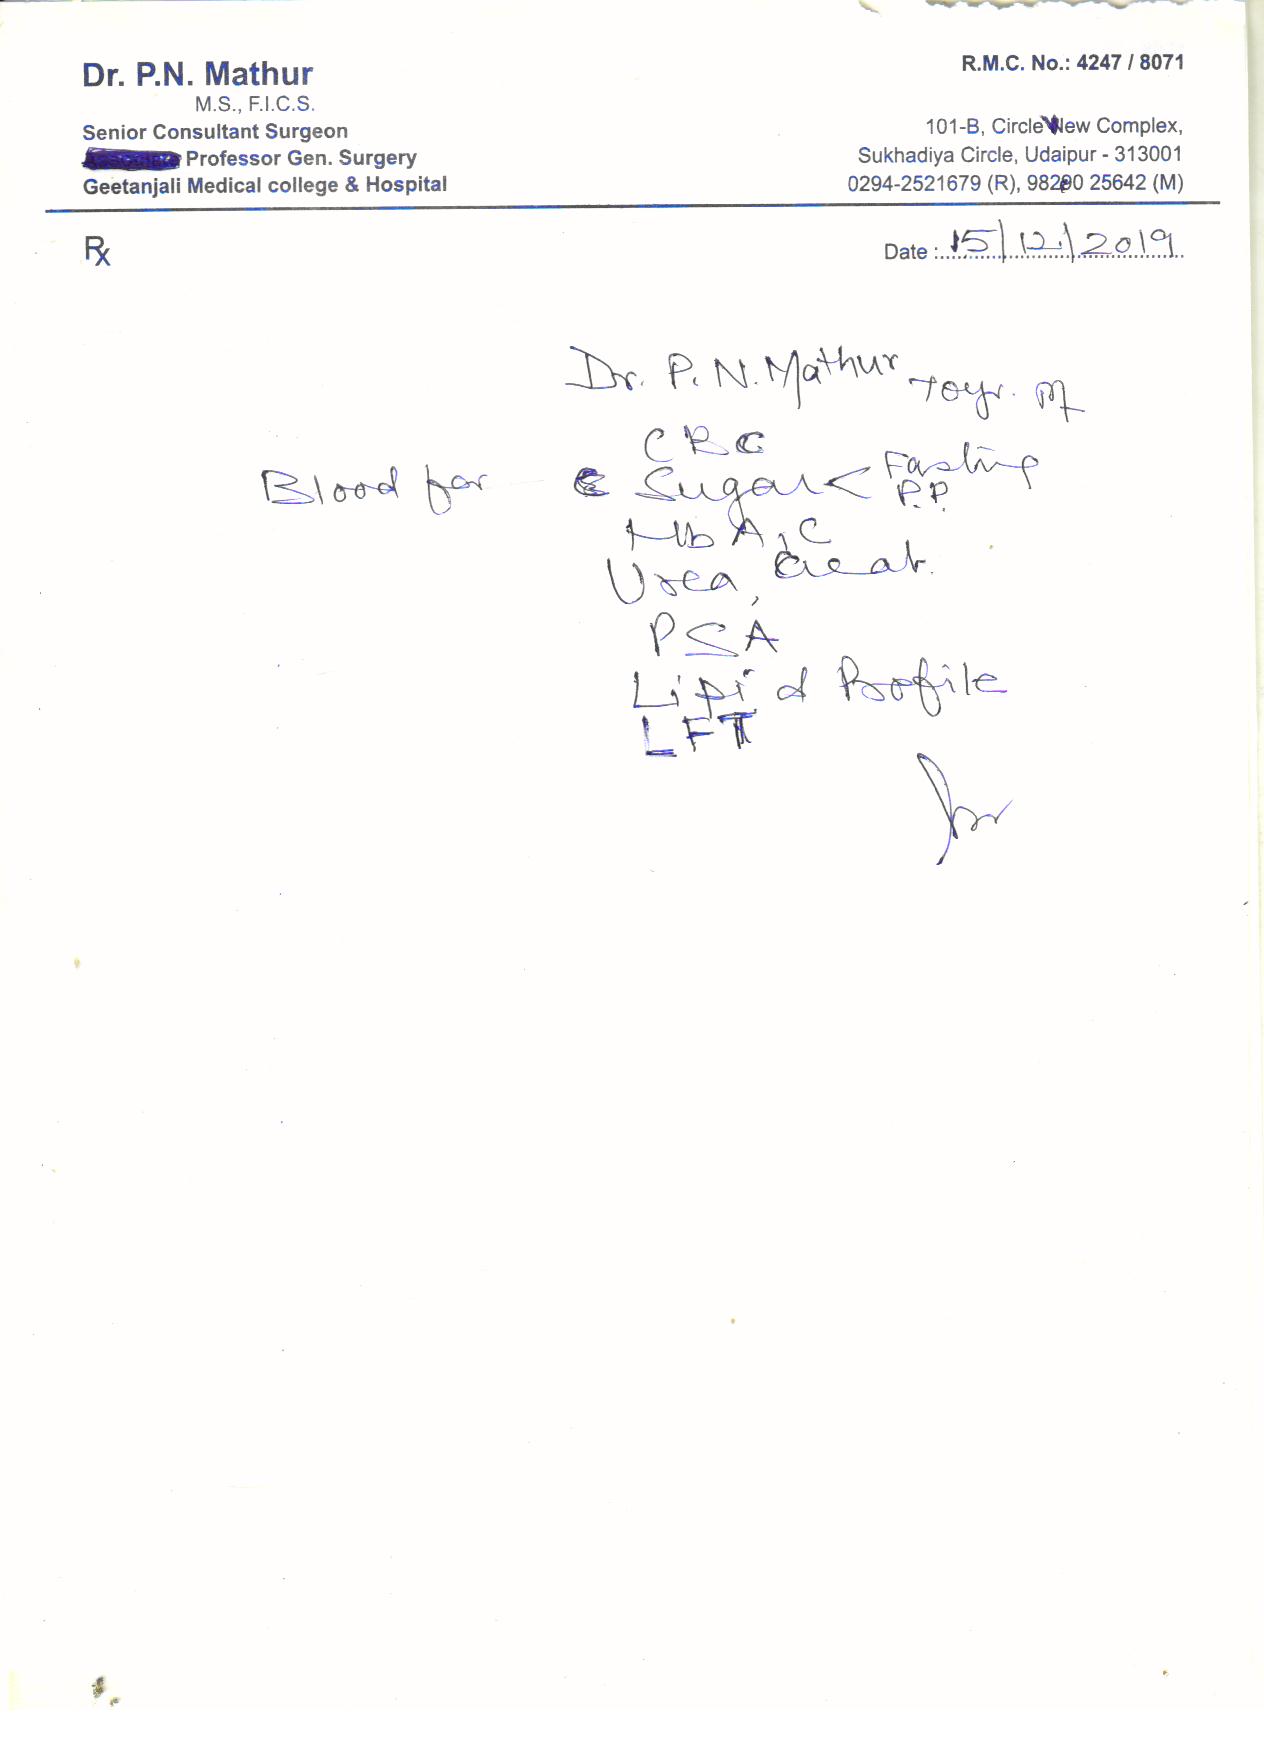 Dr. P.N. Mathur
M.S., F.I.C.S.
Senior Consultant Surgeon
Professor Gen. Surgery
Geetanjali Medical college & Hospital
R.M.C. No.: 4247 / 8071
101-B, Circle View Complex,
Sukhadiya Circle, Udaipur - 313001
0294-2521679 (R), 98290 25642 (M)
℞
Date : 15/12/2019
Dr. P. N. Mathur 70yr. M
CBC
Blood for Sugar < Fasting
P.P.
HbA1C
Urea, Creat.
PSA
Lipid Profile
LFT